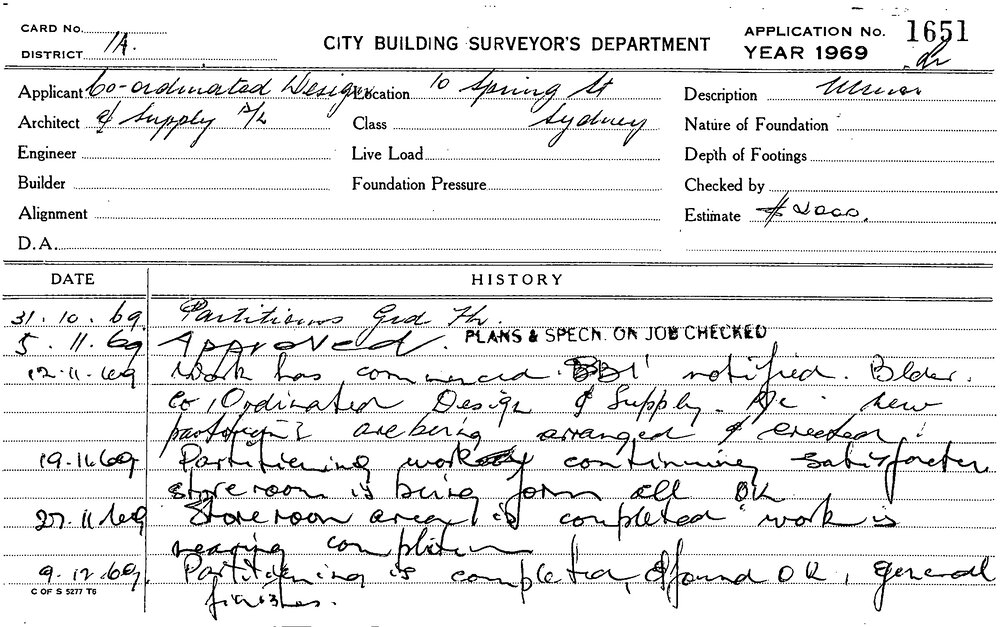 CARD No.
DISTRICT 1A.
CITY BUILDING SURVEYOR'S DEPARTMENT
APPLICATION No. 1651
YEAR 1969
Applicant Co-ordinated Design Location 10 Spring St Description Minor
Architect & Supply P/L Class Sydney Nature of Foundation
Engineer Live Load Depth of Footings
Builder Foundation Pressure Checked by
Alignment Estimate $2000.
D.A.
DATE HISTORY
31.10.69. Partitions Grd Flr.
5.11.69 Approved. PLANS & SPECN. ON JOB CHECKED
12.11.69 Work has commenced. notified. Blder.
Co, Ordinated Design & Supply. new
are being arranged & erected.
19.11.69 Partitioning work continuing
storeroom is being form all OK
27.11.69 Storeroom area is completed work is
nearing
9.12.69. Partitioning is completed, & found OK, general
finishes.
C OF S 5277 T6